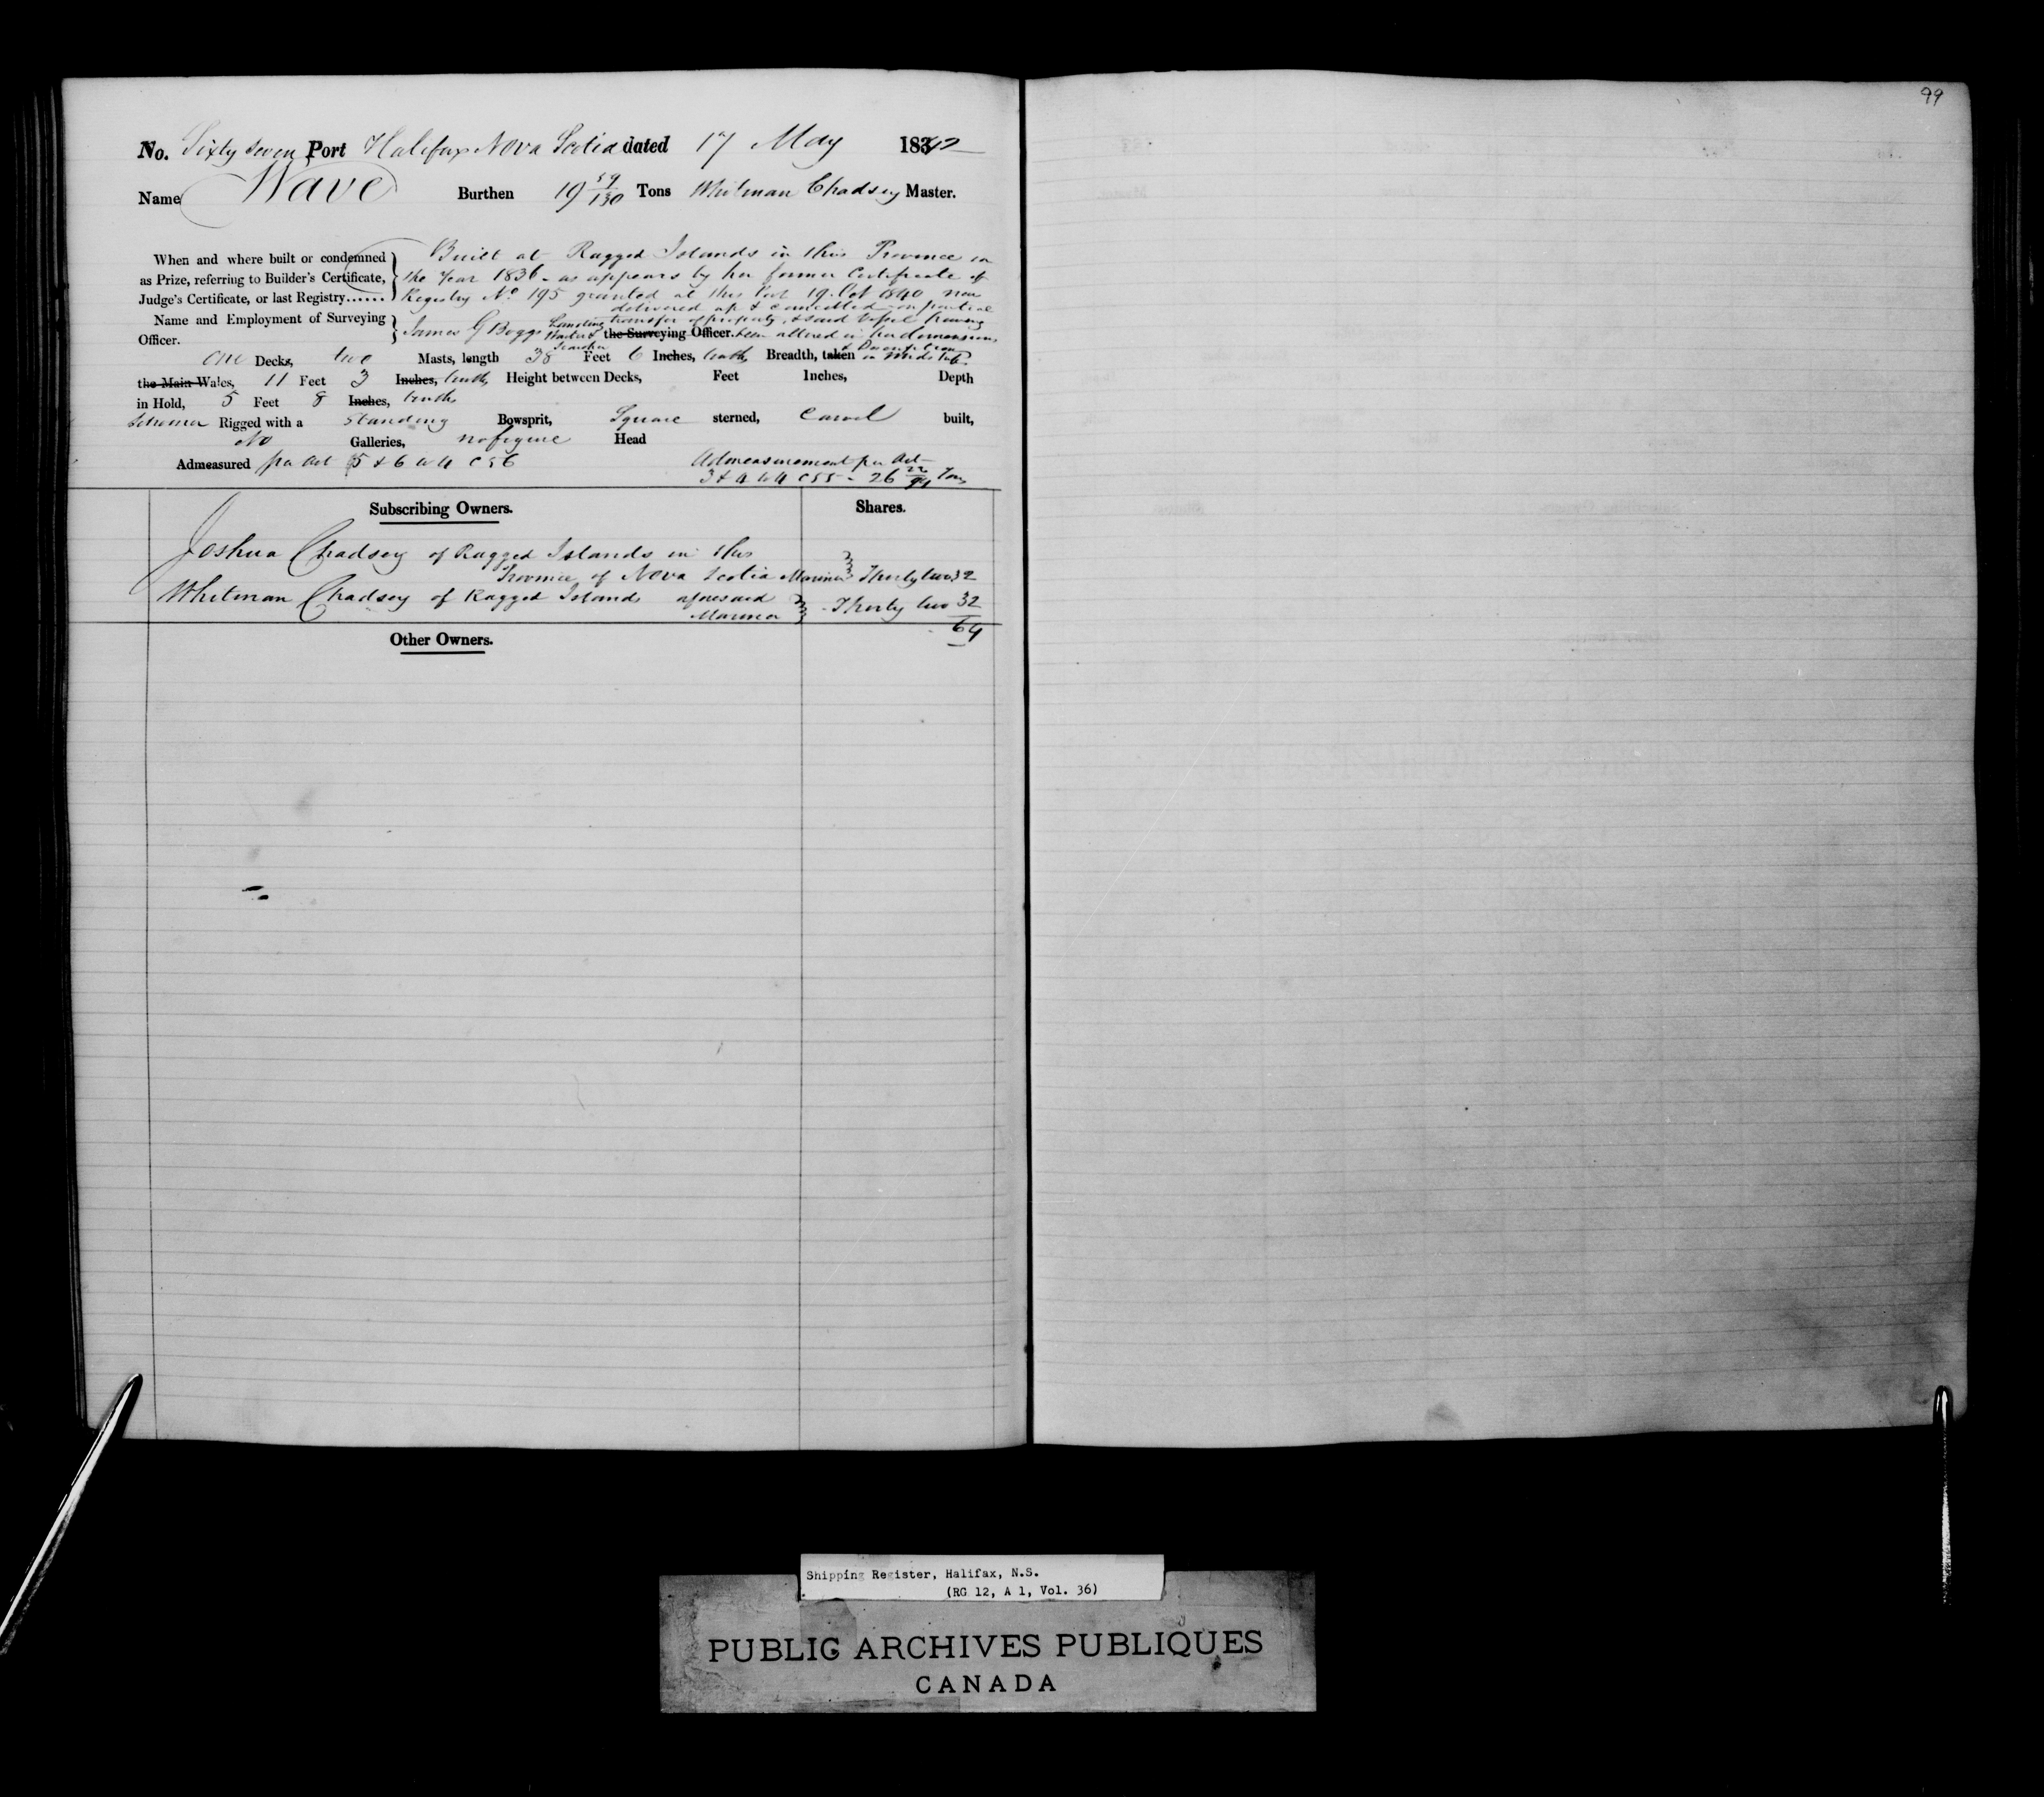 99
No. Sixty seven Port Halifax Nova Scotia dated 17 May 1842
Name Wave Burthen 19 59/130 Tons Whitman Chadsey Master.
When and where built or condemned as Prize, referring to Builder's Certificate, Judge's Certificate, or last Registry......
Built at Ragged Islands in this Province in
the Year 1836 - as appears by her former Certificate of
Registry No. 195 granted at this Port 19 Oct 1840 now
delivered up & cancelled on partial
transfer of property, & said Vessel having
been altered in her dimensions
& Description
Name and Employment of Surveying Officer.
James G Boggs Landing Waiter & Searcher the Surveying Officer.
One Decks, two Masts, length 38 Feet 6 Inches, tenths Breadth, taken in Midships
the Main Wales, 11 Feet 3 Inches, tenths Height between Decks, Feet Inches, Depth
in Hold, 5 Feet 8 Inches, tenths
Schooner Rigged with a Standing Bowsprit, Square sterned, Carvel built,
No Galleries, no figure Head
Admeasured per Act 5 & 6 W 4 C 56
Admeasurement per Act
3 & 4 W 4 C 55 - 26 22/94 Tons
Subscribing Owners. Shares.
Joshua Chadsey of Ragged Islands in this
Province of Nova Scotia Mariner Thirty two 32
Whitman Chadsey of Ragged Islands aforesaid
Mariner - Thirty two 32
64
Other Owners.
Shipping Register, Halifax, N.S.
(RG 12, A 1, Vol. 36)
PUBLIC ARCHIVES PUBLIQUES
CANADA